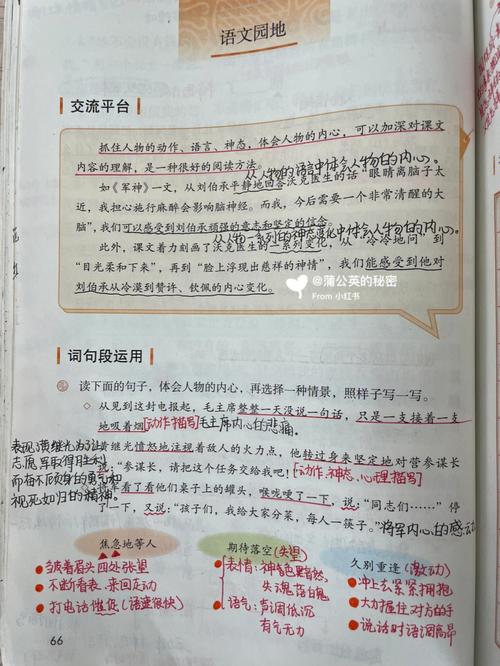 语文园地
交流平台
抓住人物的动作、语言、神态，体会人物的内心，可以加深对课文
内容的理解，是一种很好的阅读方法。
从人物的语言中体会人物的内心。
如《军神》一文，从刘伯承平静地回答沃克医生的话“眼睛离脑子太
近，我担心施行麻醉会影响脑神经。而我，今后需要一个非常清醒的大
脑”，我们可以感受到刘伯承顽强的意志和坚定的信念。
从人物一系列的神态变化中体会人物的内心。
此外，课文着力刻画了沃克医生的一系列变化，从“冷冷地问”到
“目光柔和下来”，再到“脸上浮现出慈祥的神情”，我们能感受到他对
刘伯承从冷漠到赞许、钦佩的内心变化。
@蒲公英的秘密
From 小红书
词句段运用
读下面的句子，体会人物的内心，再选择一种情景，照样子写一写。
◇ 从见到这封电报起，毛主席整整一天没说一句话，只是一支接着一支
地吸着烟。
[动作描写] 毛主席内心的悲痛。
黄继光愤怒地注视着敌人的火力点，他转过身来坚定地对营参谋长
说：“参谋长，请把这个任务交给我吧！”
[动作、神态、心理描写]
表现黄继光为让
志愿军取得胜利
而奋不顾身的勇气和
视死如归的精神。
将军看了看他们桌子上的罐头，喉咙哽了一下，说：“同志们……”停
了一下，又说：“孩子们，我给大家分菜，每人一筷子。”
将军内心的感动
焦急地等人
期待落空 (失望)
久别重逢 (激动)
皱着眉头四处张望
不断看表、来回走动
打电话催促(语速很快)
表情：神色黯然、
失魂落魄
语气：声调低沉
有气无力
冲上去紧紧拥抱
大力握住对方的手
说话时语调高昂
66